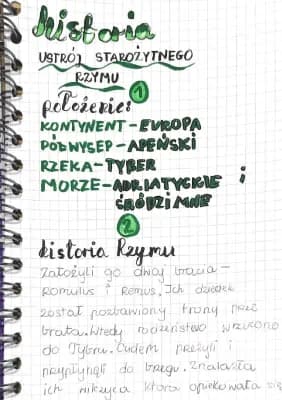 historia
USTRÓJ STAROŻYTNEGO
RZYMU
położenie: 1
KONTYNENT-EUROPA
PÓŁWYSEP-APEŃSKI
RZEKA-TYBER
MORZE-ADRIATYCKIE i
ŚRÓDZIMNE
2
historia Rzymu
Założyli go dwaj bracia-
Romulus i Remus. Ich dziadek
został pozbawiony tronu przez
brata. Wtedy rodzeństwo wrzucono
do Tybru. Cudem przeżyli i
przypłynęli do brzegu. Znalazła
ich wilczyca która opiekowała się